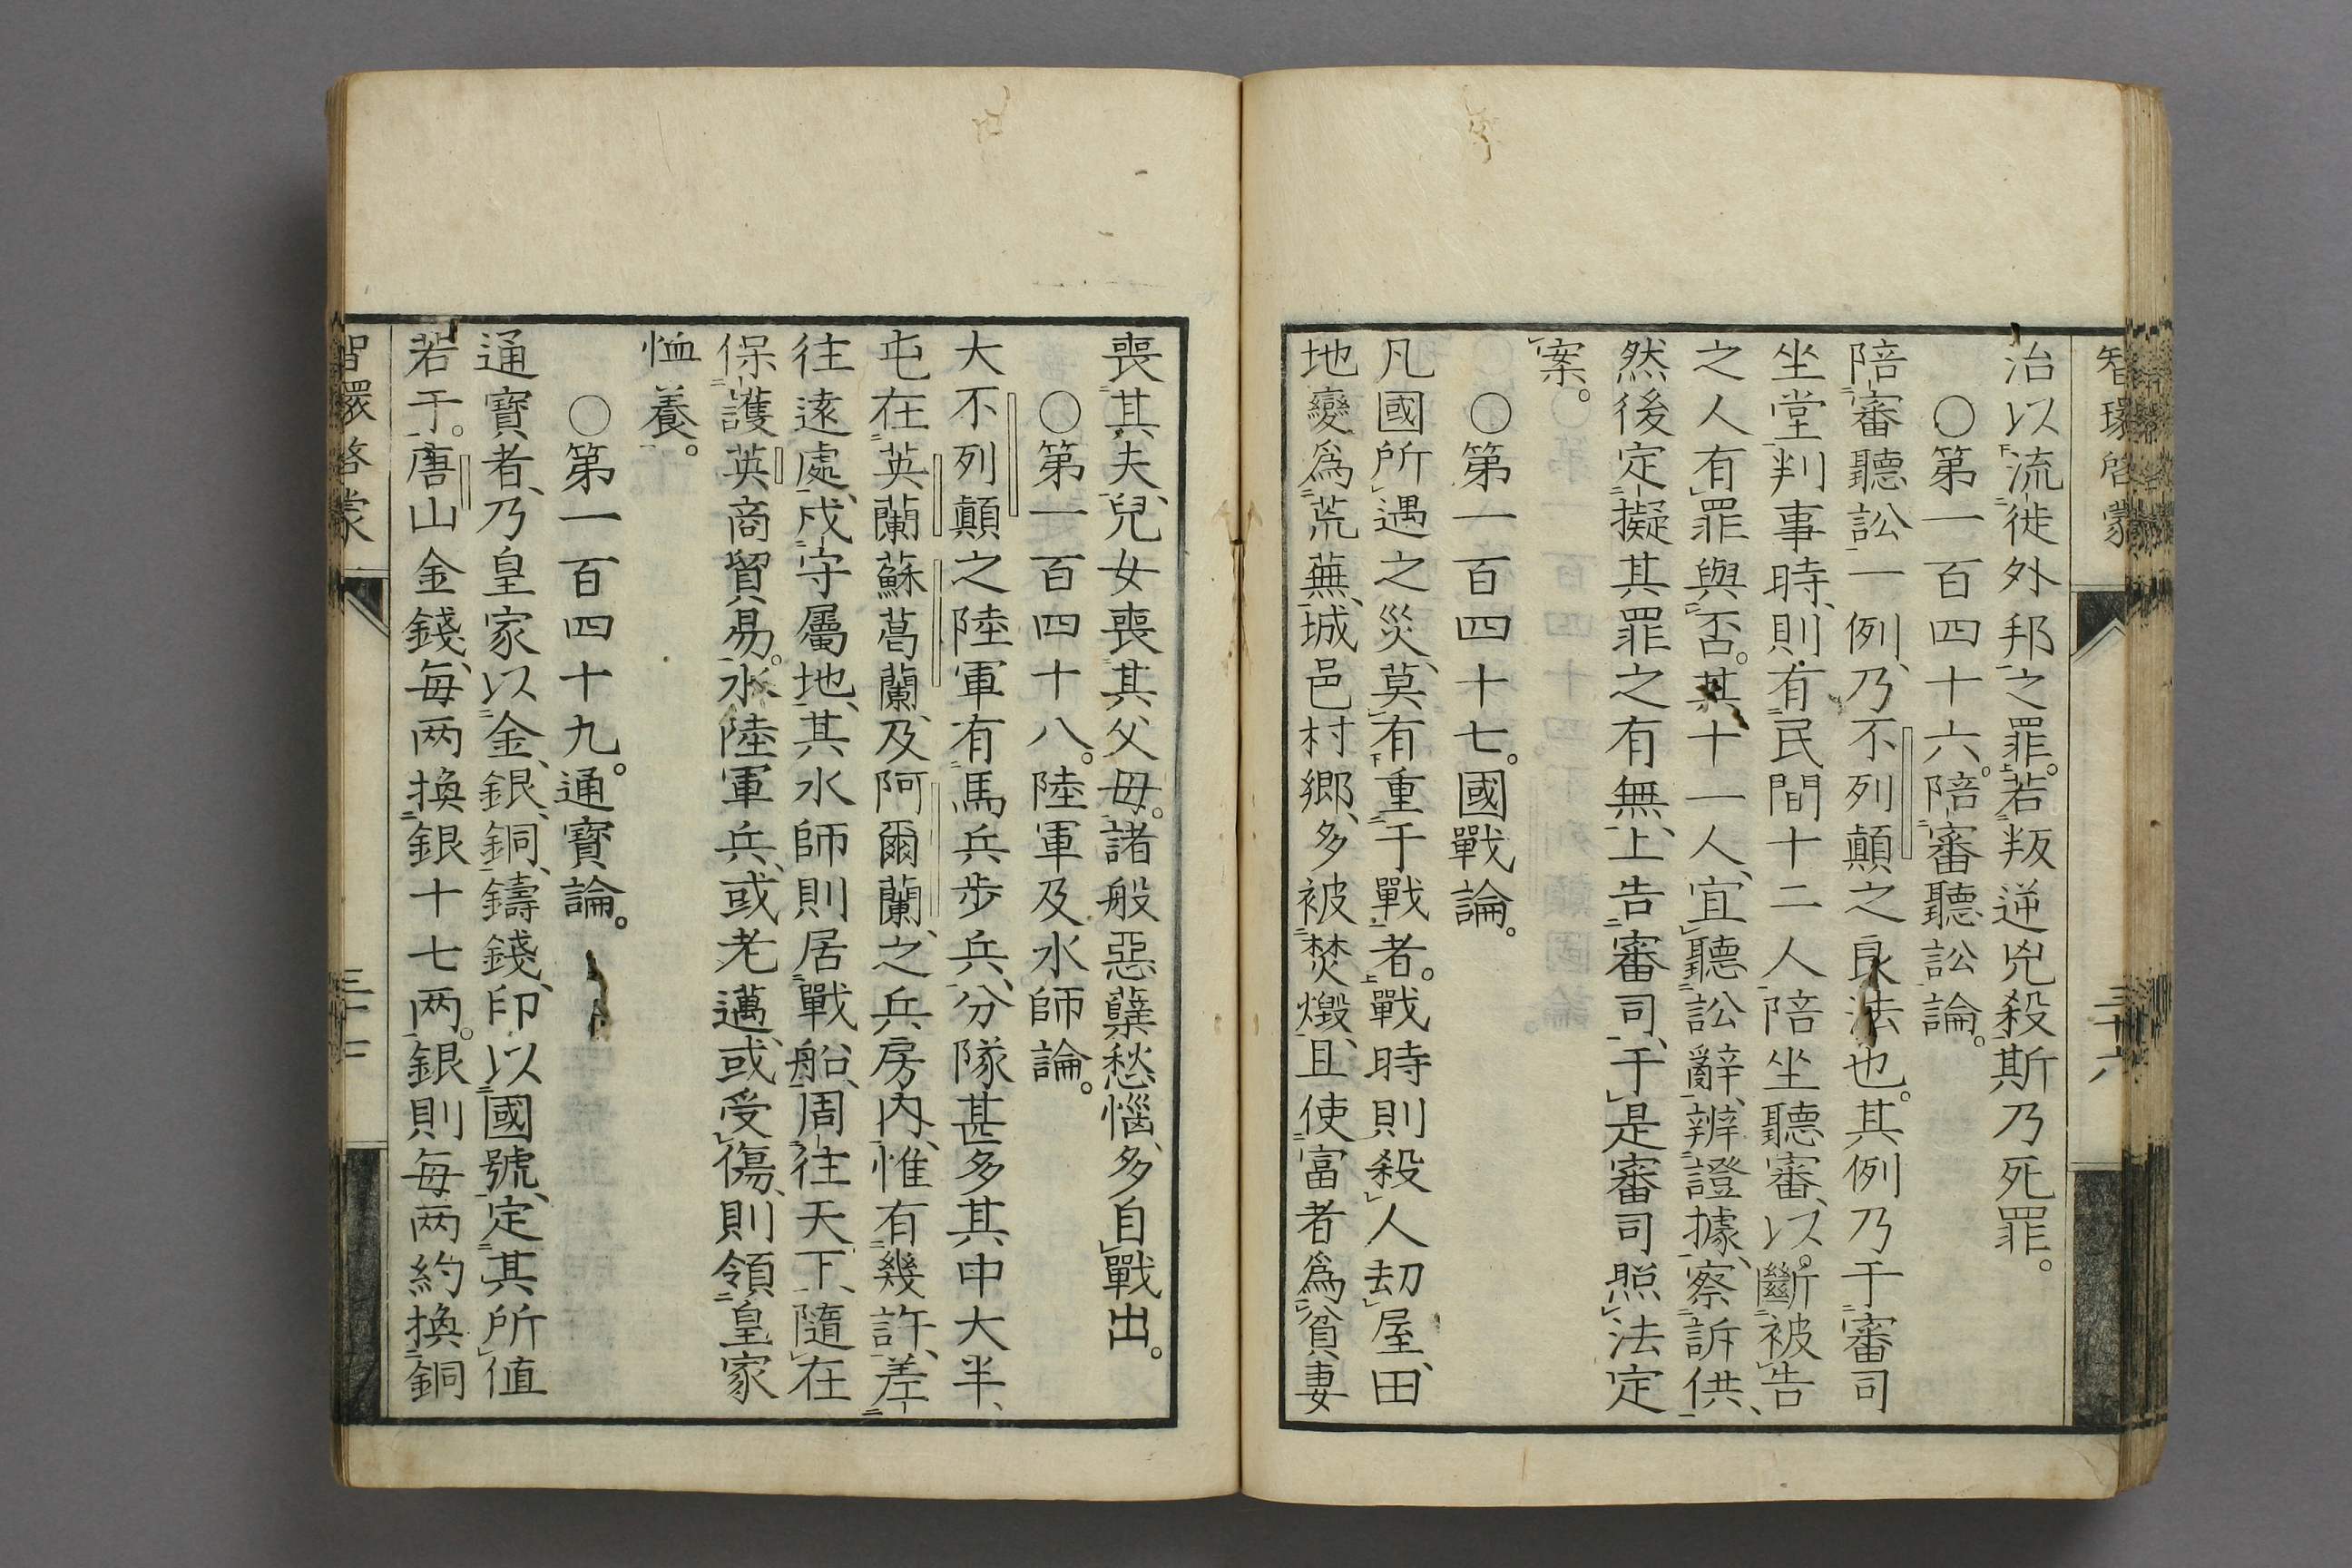 智環啓蒙
三十六
治以流徙外邦之罪。若叛逆兇殺斯乃死罪。
〇第一百四十六。陪審聽訟論。
陪審聽訟一例、乃不列顛之良法也。其例乃于審司
坐堂判事時、則有民間十二人陪坐聽審、以斷被告
之人有罪與否。其十一人、宜聽訟辭、辨證據、察訴供、
然後定擬其罪之有無、上告審司、于是審司照法定
案。
〇第一百四十七。國戰論。
凡國所遇之災、莫有重于戰者。戰時則殺人刧屋、田
地變爲荒蕪、城邑村鄉、多被焚燬、且使富者爲貧妻
喪其夫、兒女喪其父母。諸般惡孽愁惱、多自戰出。
〇第一百四十八。陸軍及水師論。
大不列顛之陸軍有馬兵步兵、分隊甚多其中大半、
屯在英蘭蘇葛蘭、及阿爾蘭、之兵房内、惟有幾許、差
往遠處、戍守屬地、其水師則居戰船、周往天下、隨在
保護英商貿易。水陸軍兵、或老邁、或受傷、則領皇家
恤養。
〇第一百四十九。通寶論。
通寶者、乃皇家以金、銀、銅、鑄錢、印以國號、定其所值
若干。唐山金錢、每两換銀十七两。銀則每两約換銅
智環啓蒙
三十七